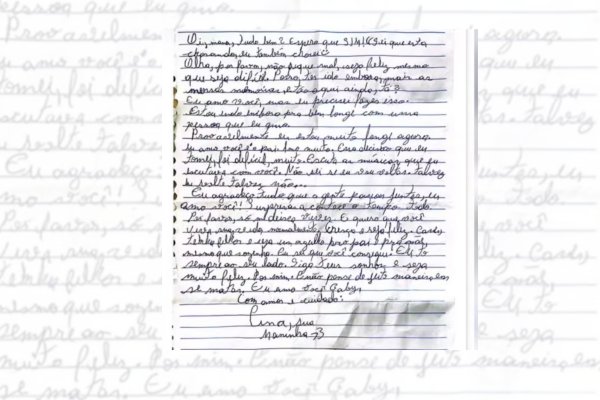 Oi, mana, tudo bem? Espero que sei que esta
chorando, eu também chorei
Olha, por favor, não fique mal, seja feliz mesmo
que seja difícil. Posso ter ido embora, mais as
nossas memórias estão aqui ainda, tá?
Eu amo você, mas eu preciso fazer isso.
Estou indo embora pra bem longe com uma
pessoa que eu amo
Provavelmente eu estou muito longe agora,
eu amo você e o pai amo muito. Essa decisão que eu
tomei, foi difícil, muito. Escute as músicas que eu
escutava com você. Não sei se eu vou voltar. Talvez
eu volte talvez não...
Eu agradeço tudo que a gente passou juntas, eu
amo você! o tempo todo.
Por favor, só deixo E quero que você
viva sua vida normalmente, cresça e seja feliz. Case,
tenha filhos e seja um orgulho pro pai e pra mãe,
mesmo que sozinha. Eu sei que você consegue. Eu to
sempre ao seu lado. Siga seus sonhos e seja
muito feliz. Por mim. E não pense de jeito maneira, em
se matar. Eu amo você Gaby,
Com amor e cuidado:
sua
Maninha <3